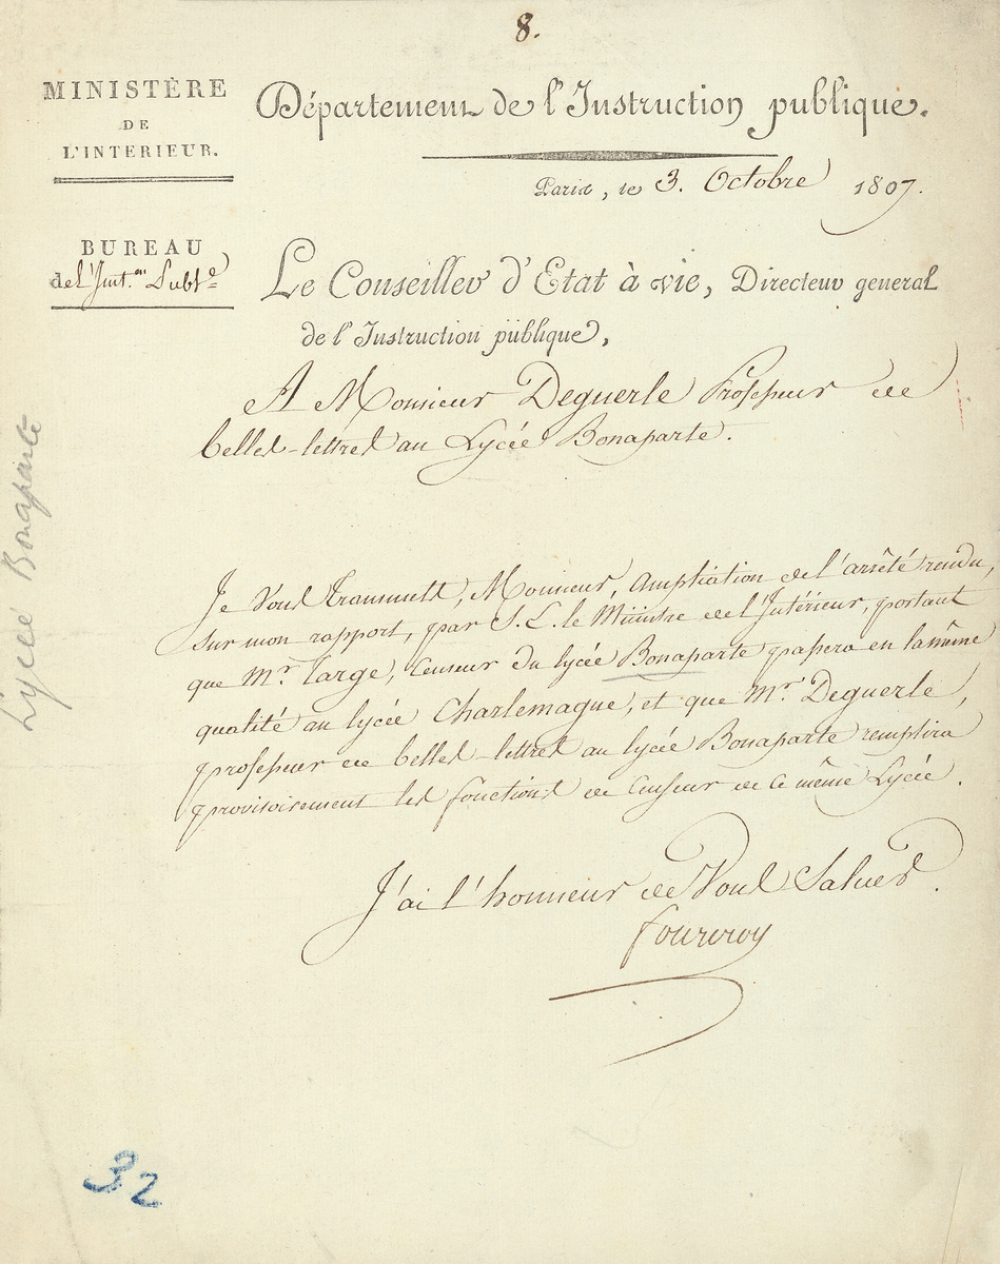 8.
MINISTÈRE
DE
L'INTERIEUR.
Département de l'Instruction publique.
Paris, le 3. Octobre 1807.
BUREAU
de l'Inst.on Publ.e
Le Conseiller d'Etat à vie, Directeur general
de l'Instruction publique,
A Monsieur Deguerle Professeur de
belles-lettres au Lycée Bonaparte.
Lycée Bonaparte
Je Vous transmets, Monsieur, ampliation de l'arrêté rendu,
sur mon rapport, par S. E. le Ministre de l'Intérieur, portant
que Mr. Targe, Censeur du lycée Bonaparte passera en la même
qualité au lycée Charlemagne, et que Mr. Deguerle,
professeur de belles-lettres au lycée Bonaparte remplira
provisoirement les fonctions de Censeur de ce même Lycée.
J'ai l'honneur de Vous Saluer.
fourcroy
32